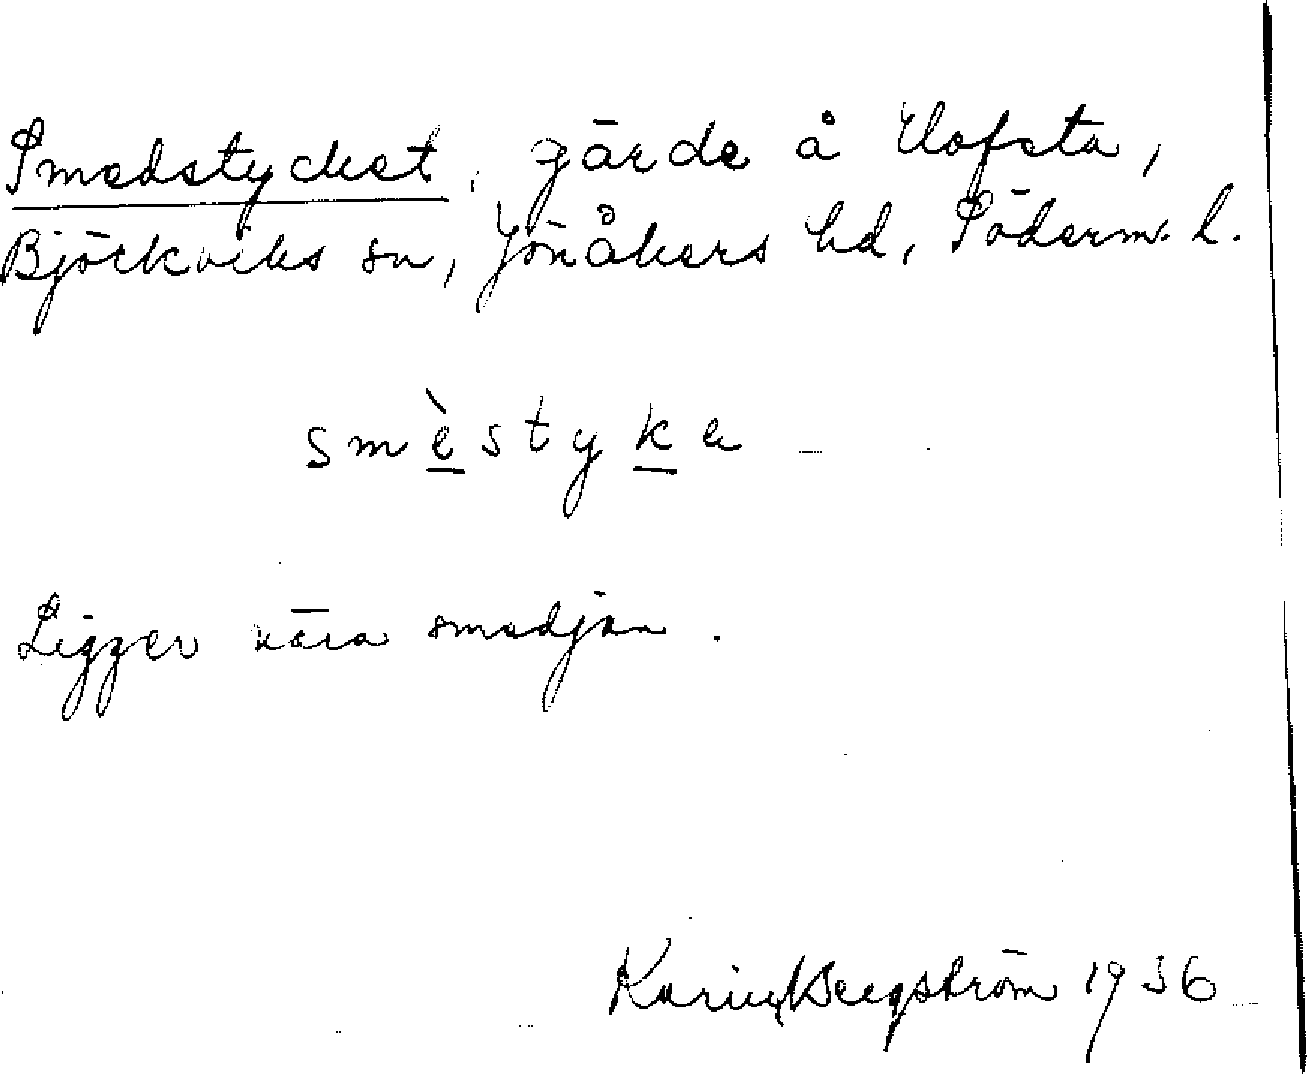 Smedstycket, gärde å Hofsta,
Björkviks sn, Jönåkers hd, Söderm. l.
smèstyke
Ligger nära smedjan.
Karin Bergström 1936